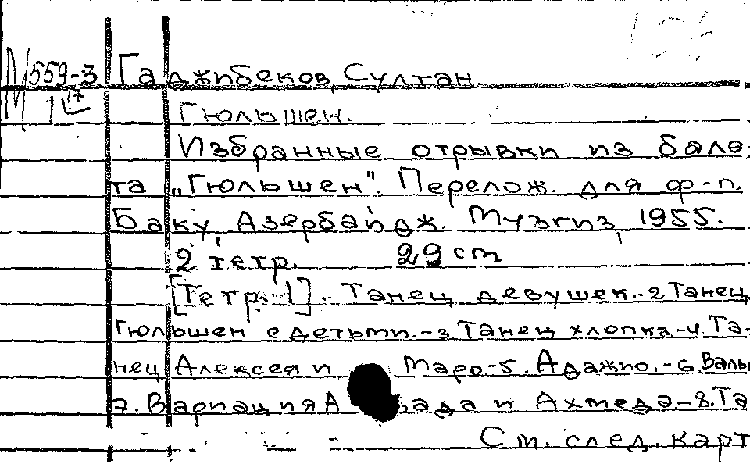 М 559-3 Гаджибеков, Султан
17
Гюльшен.
Избранные отрывки из бале-
та „Гюльшен". Перелож. для ф-п.
Баку, Азербайдж. Музгиз, 1955.
2 тетр. 29 cm
[Тетр. 1]. Танец девушек.-2.Танец
Гюльшен с детьми.-3.Танец хлопка-4.Та-
нец Алексея и Маро-5.Адажио.-6.Валь
7.Вариация и Ахмеда-8.Та
См. след. карт